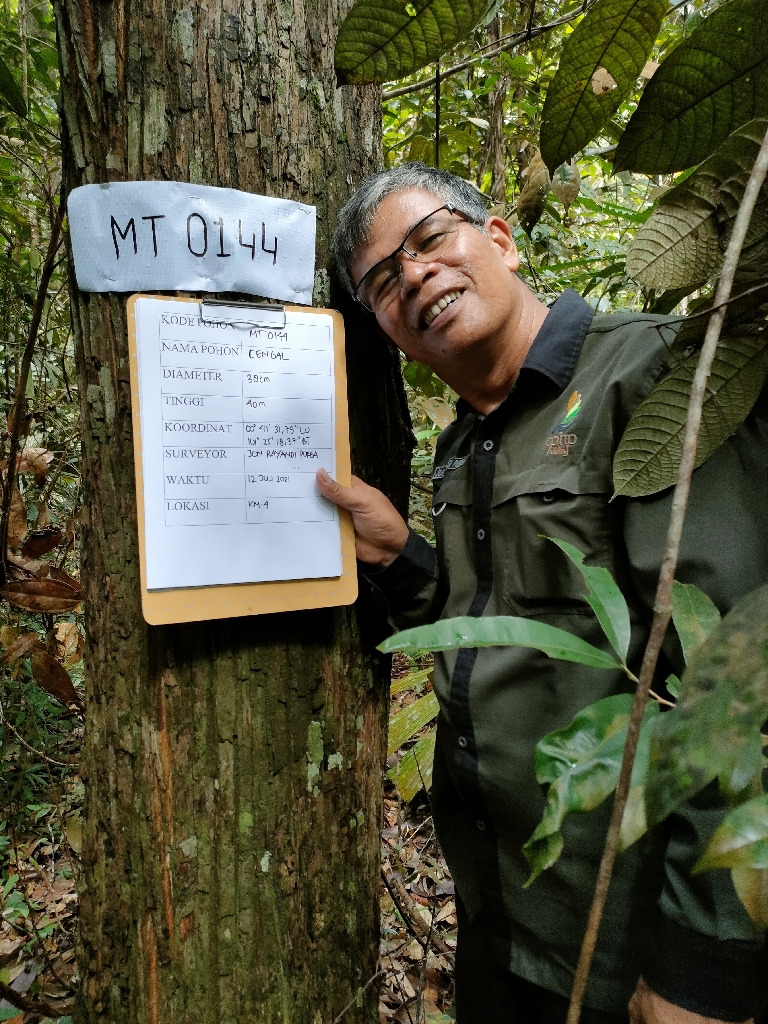 MT 0144
KODE POHON MT 0144
NAMA POHON CENGAL
DIAMETER 38cm
TINGGI 40m
KOORDINAT 03° 41' 31,75" LU
101° 25' 18,37" BT
SURVEYOR JON RAYANDI PURBA
WAKTU 12 JULI 2021
LOKASI KM.4